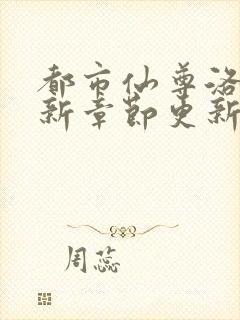 都市仙尊洛
新章节更新
周蕊